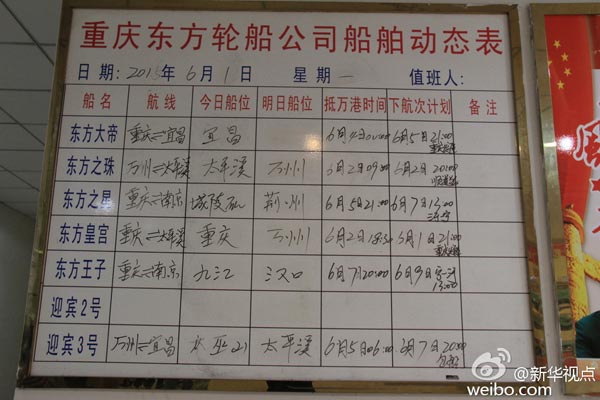 重庆东方轮船公司船舶动态表
日期: 2015年6月1日 星期一 值班人:
船名 航线 今日船位 明日船位 抵万港时间 下航次计划 备注
东方大帝 重庆=宜昌 宜昌 6月4日01:00 6月5日21:00
东方之珠 万州=太平溪 太平溪 万州 6月2日09:00 6月2日20:00
东方之星 重庆=南京 城陵矶 荆州 6月5日21:00 6月7日13:00
东方皇宫 重庆=太平溪 重庆 万州 6月2日18:50 6月1日21:00
东方王子 重庆=南京 九江 汉口 6月7日20:00 6月9日
13:00
迎宾2号
迎宾3号 万州=宜昌 巫山 太平溪 6月5日06:00 6月7日20:00
@新华视点
weibo.com